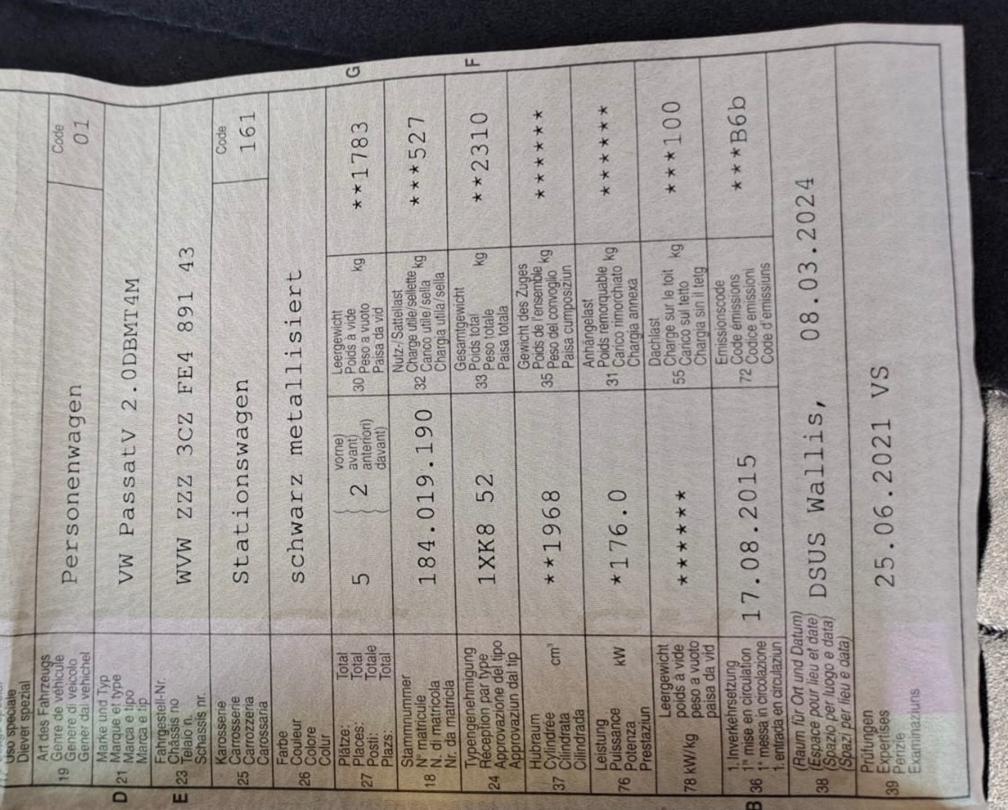 Uso speciale
Diever spezial
Art des Fahrzeugs
Genre de véhicule
19 Genere di veicolo
Gener dal vehichel
Personenwagen
Code
01
Marke und Typ
D 21 Marque et type
Marca e tipo
Marca e tip
VW PassatV 2.0DBMT4M
Fahrgestell-Nr.
E 23 Châssis no
Telaio n.
Schassis nr.
WVW ZZZ 3CZ FE4 891 43
Karosserie
25 Carrosserie
Carrozzeria
Carossaria
Stationswagen
Code
161
Farbe
26 Couleur
Colore
Colur
schwarz metallisiert
Plätze: Total
27 Places: Total
Posti: Totale
Plazs: Total
5
2
vorne)
avant)
anteriori)
davant)
Leergewicht
30 Poids à vide kg
Peso a vuoto
Paisa da vid
**1783
G
Stammnummer
18 N° matricule
N. di matricola
Nr. da matricla
184.019.190
Nutz-/Sattellast
32 Charge utile/sellette kg
Carico utile/sella
Chargia utila/sella
***527
Typengenehmigung
24 Réception par type
Approvazione del tipo
Approvaziun dal tip
1XK8 52
Gesamtgewicht
33 Poids total kg
Peso totale
Paisa totala
**2310
F
Hubraum
37 Cylindrée cm³
Cilindrata
Cilindrada
**1968
Gewicht des Zuges
35 Poids de l'ensemble kg
Peso del convoglio
Paisa cumposiziun
******
Leistung
76 Puissance kW
Potenza
Prestaziun
*176.0
Anhängelast
31 Poids remorquable kg
Carico rimorchiato
Chargia annexa
******
78 kW/kg
Leergewicht
poids à vide
peso a vuoto
paisa da vid
******
Dachlast
55 Charge sur le toit kg
Carico sul tetto
Chargia sin il tetg
***100
1. Inverkehrsetzung
B 36 1re mise en circulation
1a messa in circolazione
1. entrada en circulaziun
17.08.2015
Emissionscode
72 Code émissions
Codice emissioni
Code d'emissiuns
***B6b
(Raum für Ort und Datum)
38 (Espace pour lieu et date)
(Spazio per luogo e data)
(Spazi per lieu e data)
DSUS Wallis, 08.03.2024
Prüfungen
39 Expertises
Perizie
Examinaziuns
25.06.2021 VS